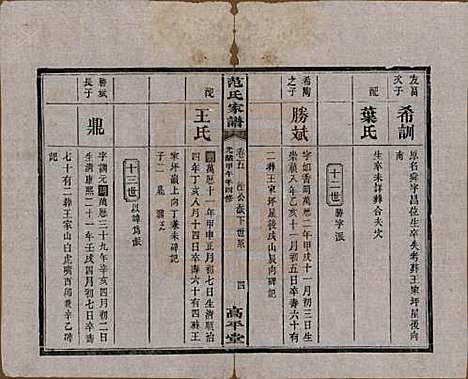 友高
次子
希訓
原名舜字昌位生卒失考葬王家坪屋後
南
配
葉氏
生卒未詳葬合夫穴
十二世
勝字派
希陶
之子
勝斌
字如香明萬歷二年甲戌十一月初三日生
崇禎八年乙亥十一月初五日卒壽六十有
二葬王家坪屋後戌山辰向碑記
配
王氏
萬歷十一年甲申正月初七日生清順治
四年丁亥八月十四日卒壽六十有四葬王
家坪嶺上向丁兼未碑記
子二
鼎
范氏家譜
卷五
仕公派下世系
四
光緒甲午年四修
高平堂
十三世
以諱為派
勝斌
長子
鼎
字調元明萬歷三十九年辛亥四月初二日
生清康熙二十一年壬戌四月初七日卒壽
七十有二葬王家山白虎嘴酉兼辛乙碑
記